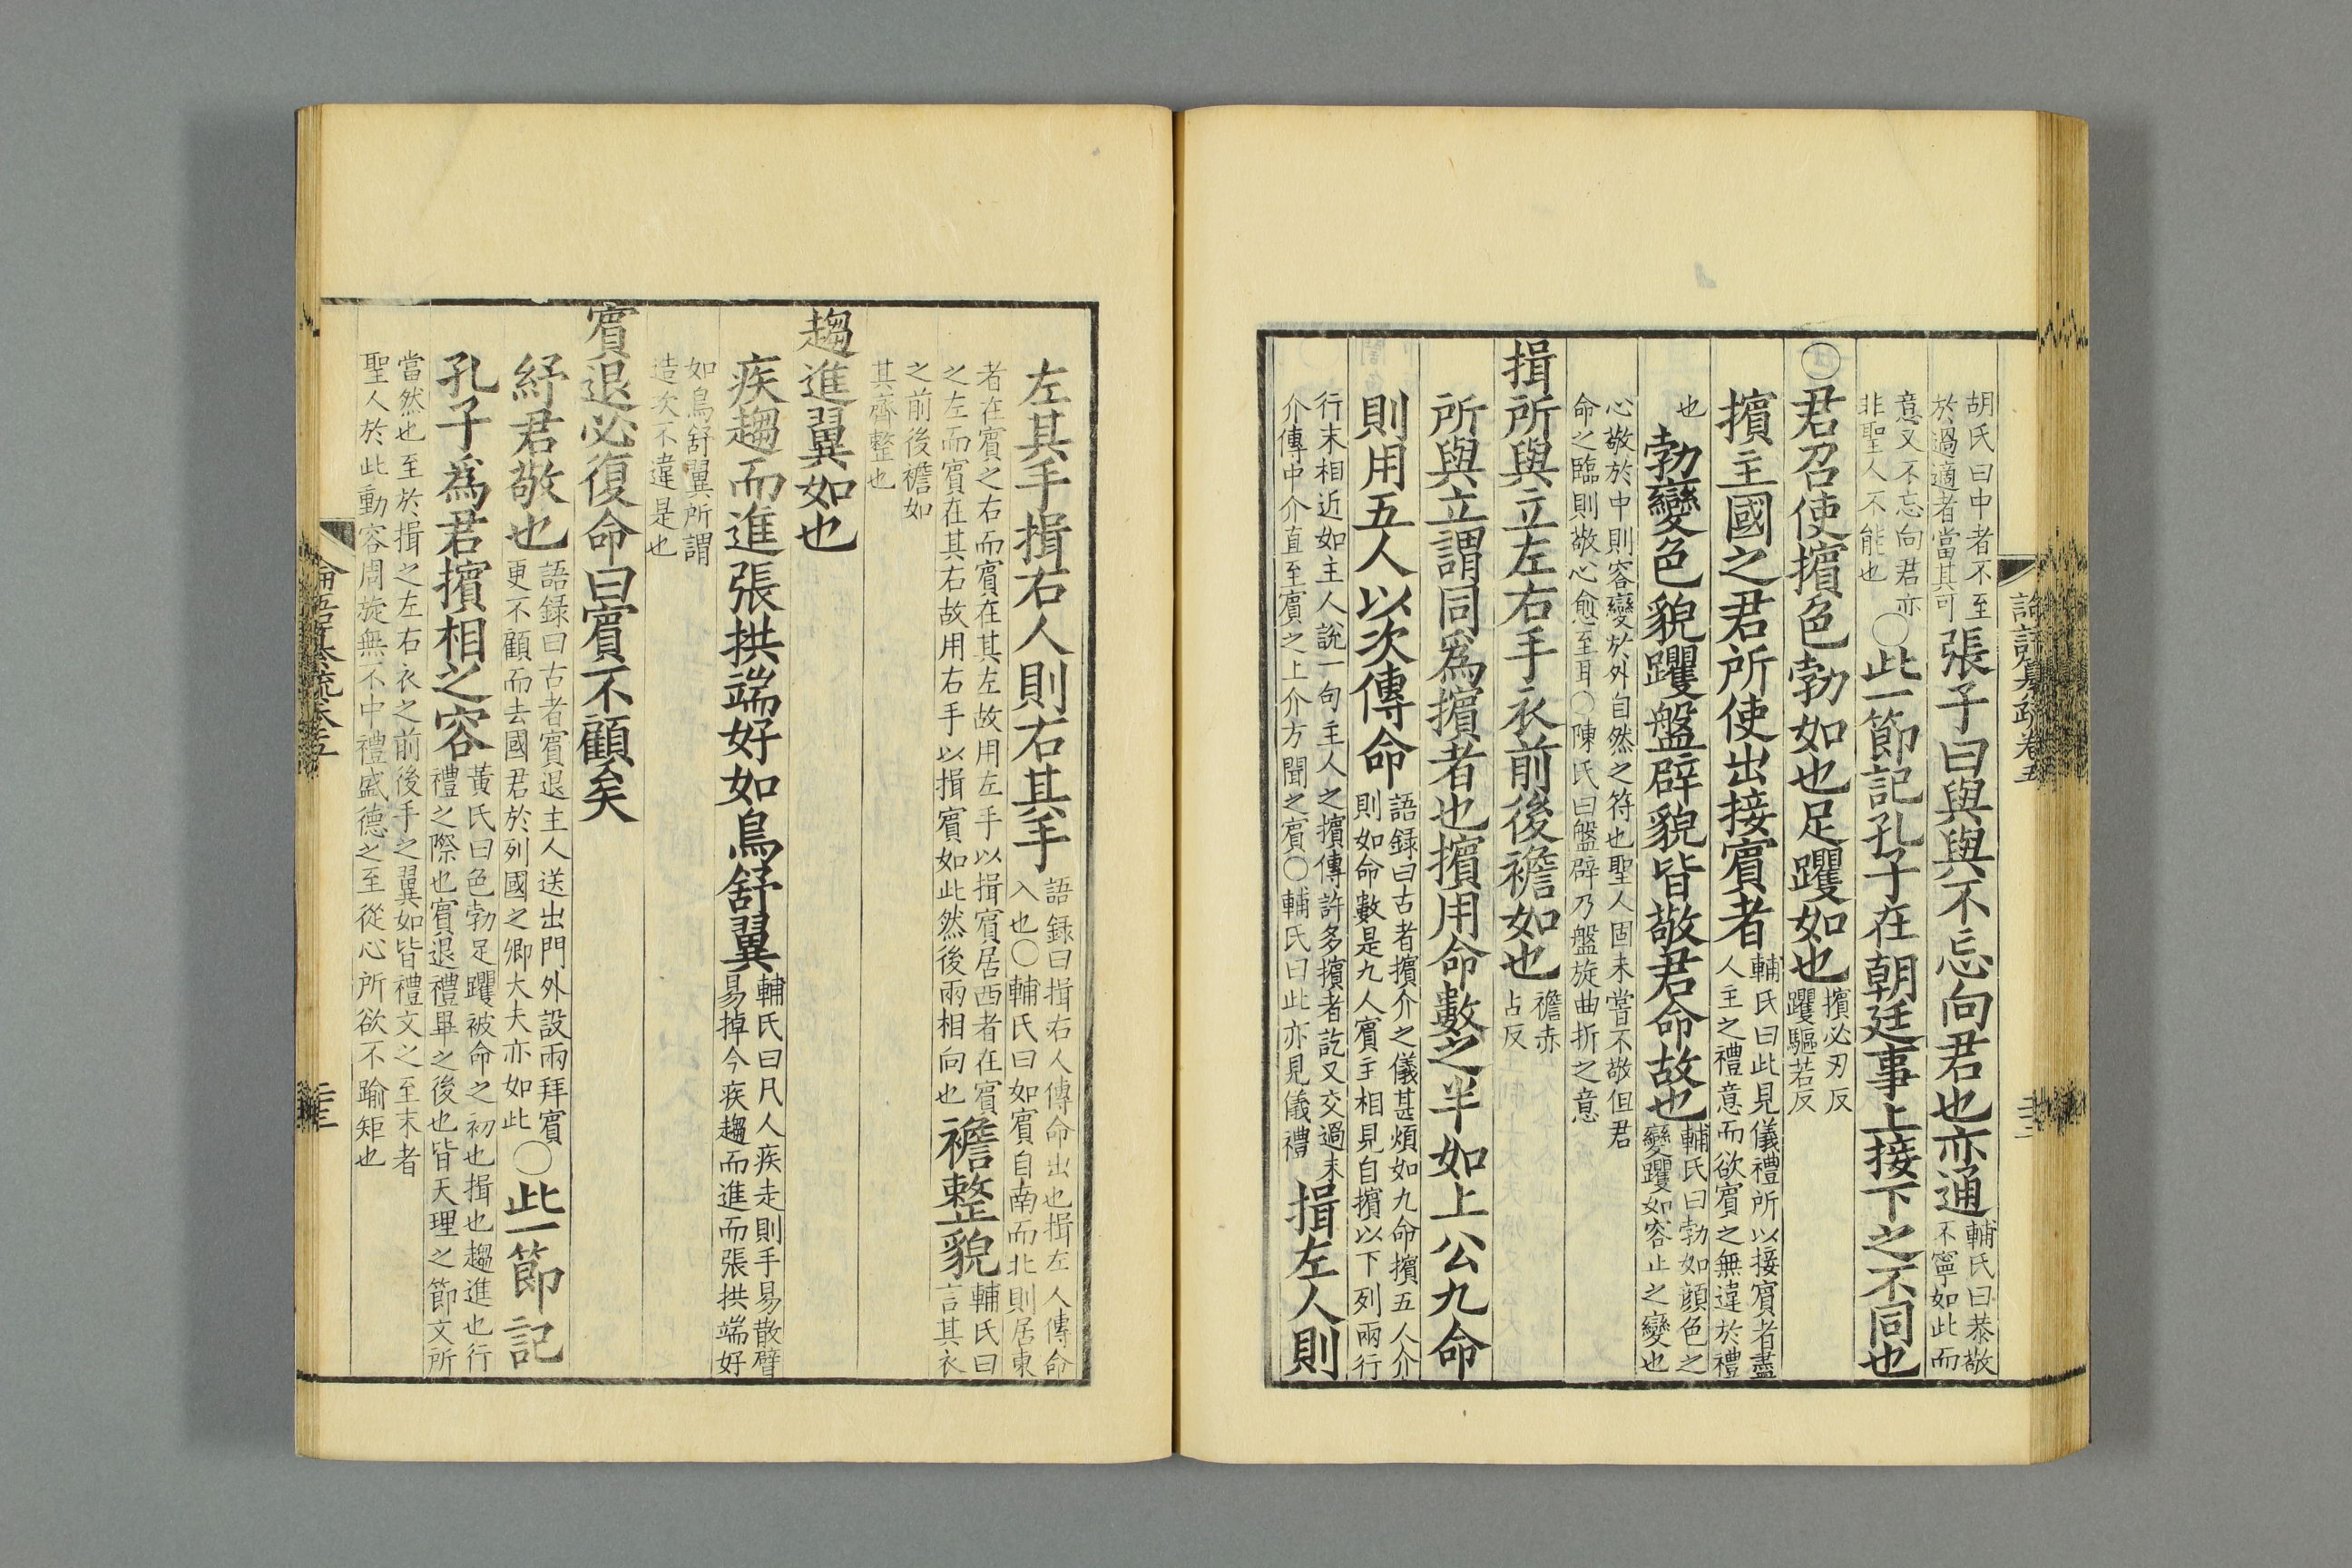 胡氏曰中者不至
於過適者當其可
張子曰與與不忘向君也亦通
輔氏曰恭敬
不寧如此而
意又不忘向君亦
非聖人不能也
○此一節記孔子在朝廷事上接下之不同也
○君召使擯色勃如也足躩如也
擯必刃反
躩驅若反
擯主國之君所使出接賓者
輔氏曰此見儀禮所以接賓者盡
人主之禮意而欲賓之無違於禮
也
勃變色貌躩盤辟貌皆敬君命故也
輔氏曰勃如顔色之
變躩如容止之變也
心敬於中則容變於外自然之符也聖人固未嘗不敬但君
命之臨則敬心愈至耳○陳氏曰盤辟乃盤旋曲折之意
揖所與立左右手衣前後襜如也
襜赤
占反
所與立謂同爲擯者也擯用命數之半如上公九命
則用五人以次傳命
語錄曰古者擯介之儀甚煩如九命擯五人介
則如命數是九人賓主相見自擯以下列兩行
行末相近如主人說一句主人之擯傳許多擯者訖又交過末
介傳中介直至賓之上介方聞之賓○輔氏曰此亦見儀禮
揖左人則
左其手揖右人則右其手
語錄曰揖右人傳命出也揖左人傳命
入也○輔氏曰如賓自南而北則居東
者在賓之右而賓在其左故用左手以揖賓居西者在賓
之左而賓在其右故用右手以揖賓如此然後兩相向也
襜整貌
輔氏曰
言其衣
之前後襜如
其齊整也
趨進翼如也
疾趨而進張拱端好如鳥舒翼
輔氏曰凡人疾走則手易散臂
易掉今疾趨而進而張拱端好
如鳥舒翼所謂
造次不違是也
賓退必復命曰賓不顧矣
紓君敬也
語錄曰古者賓退主人送出門外設兩拜賓
更不顧而去國君於列國之卿大夫亦如此
○此一節記
孔子爲君擯相之容
黃氏曰色勃足躩被命之初也揖也趨進也行
禮之際也賓退禮畢之後也皆天理之節文所
當然也至於揖之左右衣之前後手之翼如皆禮文之至末者
聖人於此動容周旋無不中禮盛德之至從心所欲不踰矩也